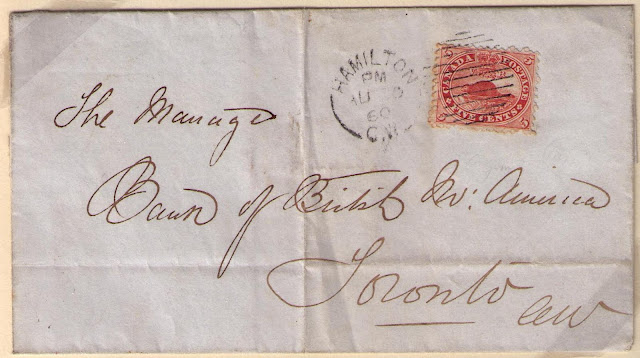 HAMILTON
PM
AU
60
C.W.
CANADA POSTAGE
5 5
FIVE CENTS
5 5
The Manager
Bank of British No: America
Toronto
CW